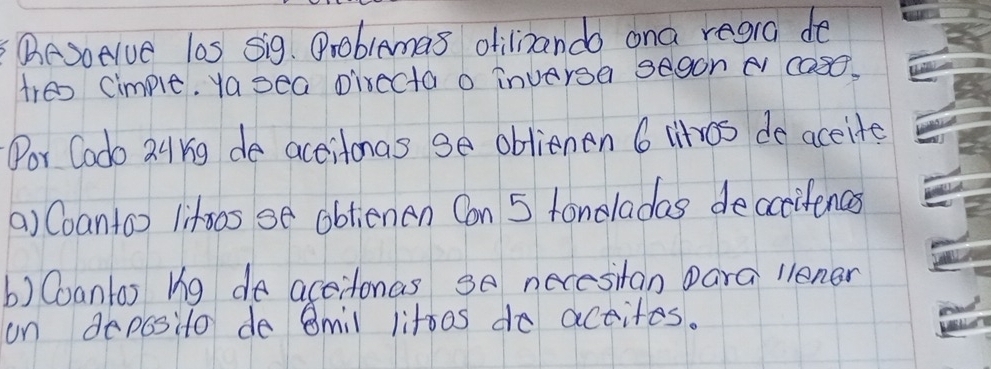 Resoelve los sig. Problemas otilizando ona regla de
tres Cimple. Ya sea Directa o inversa segon el caso.
Por Cado 24 Kg de aceitonas se obtienen 6 litros de aceite
a) Coantos litros se obtienen Con 5 toneladas de aceitenas
b) Coantos Kg de aceitonas se necesitan para llenar
on deposito de 8mil litros de aceites.